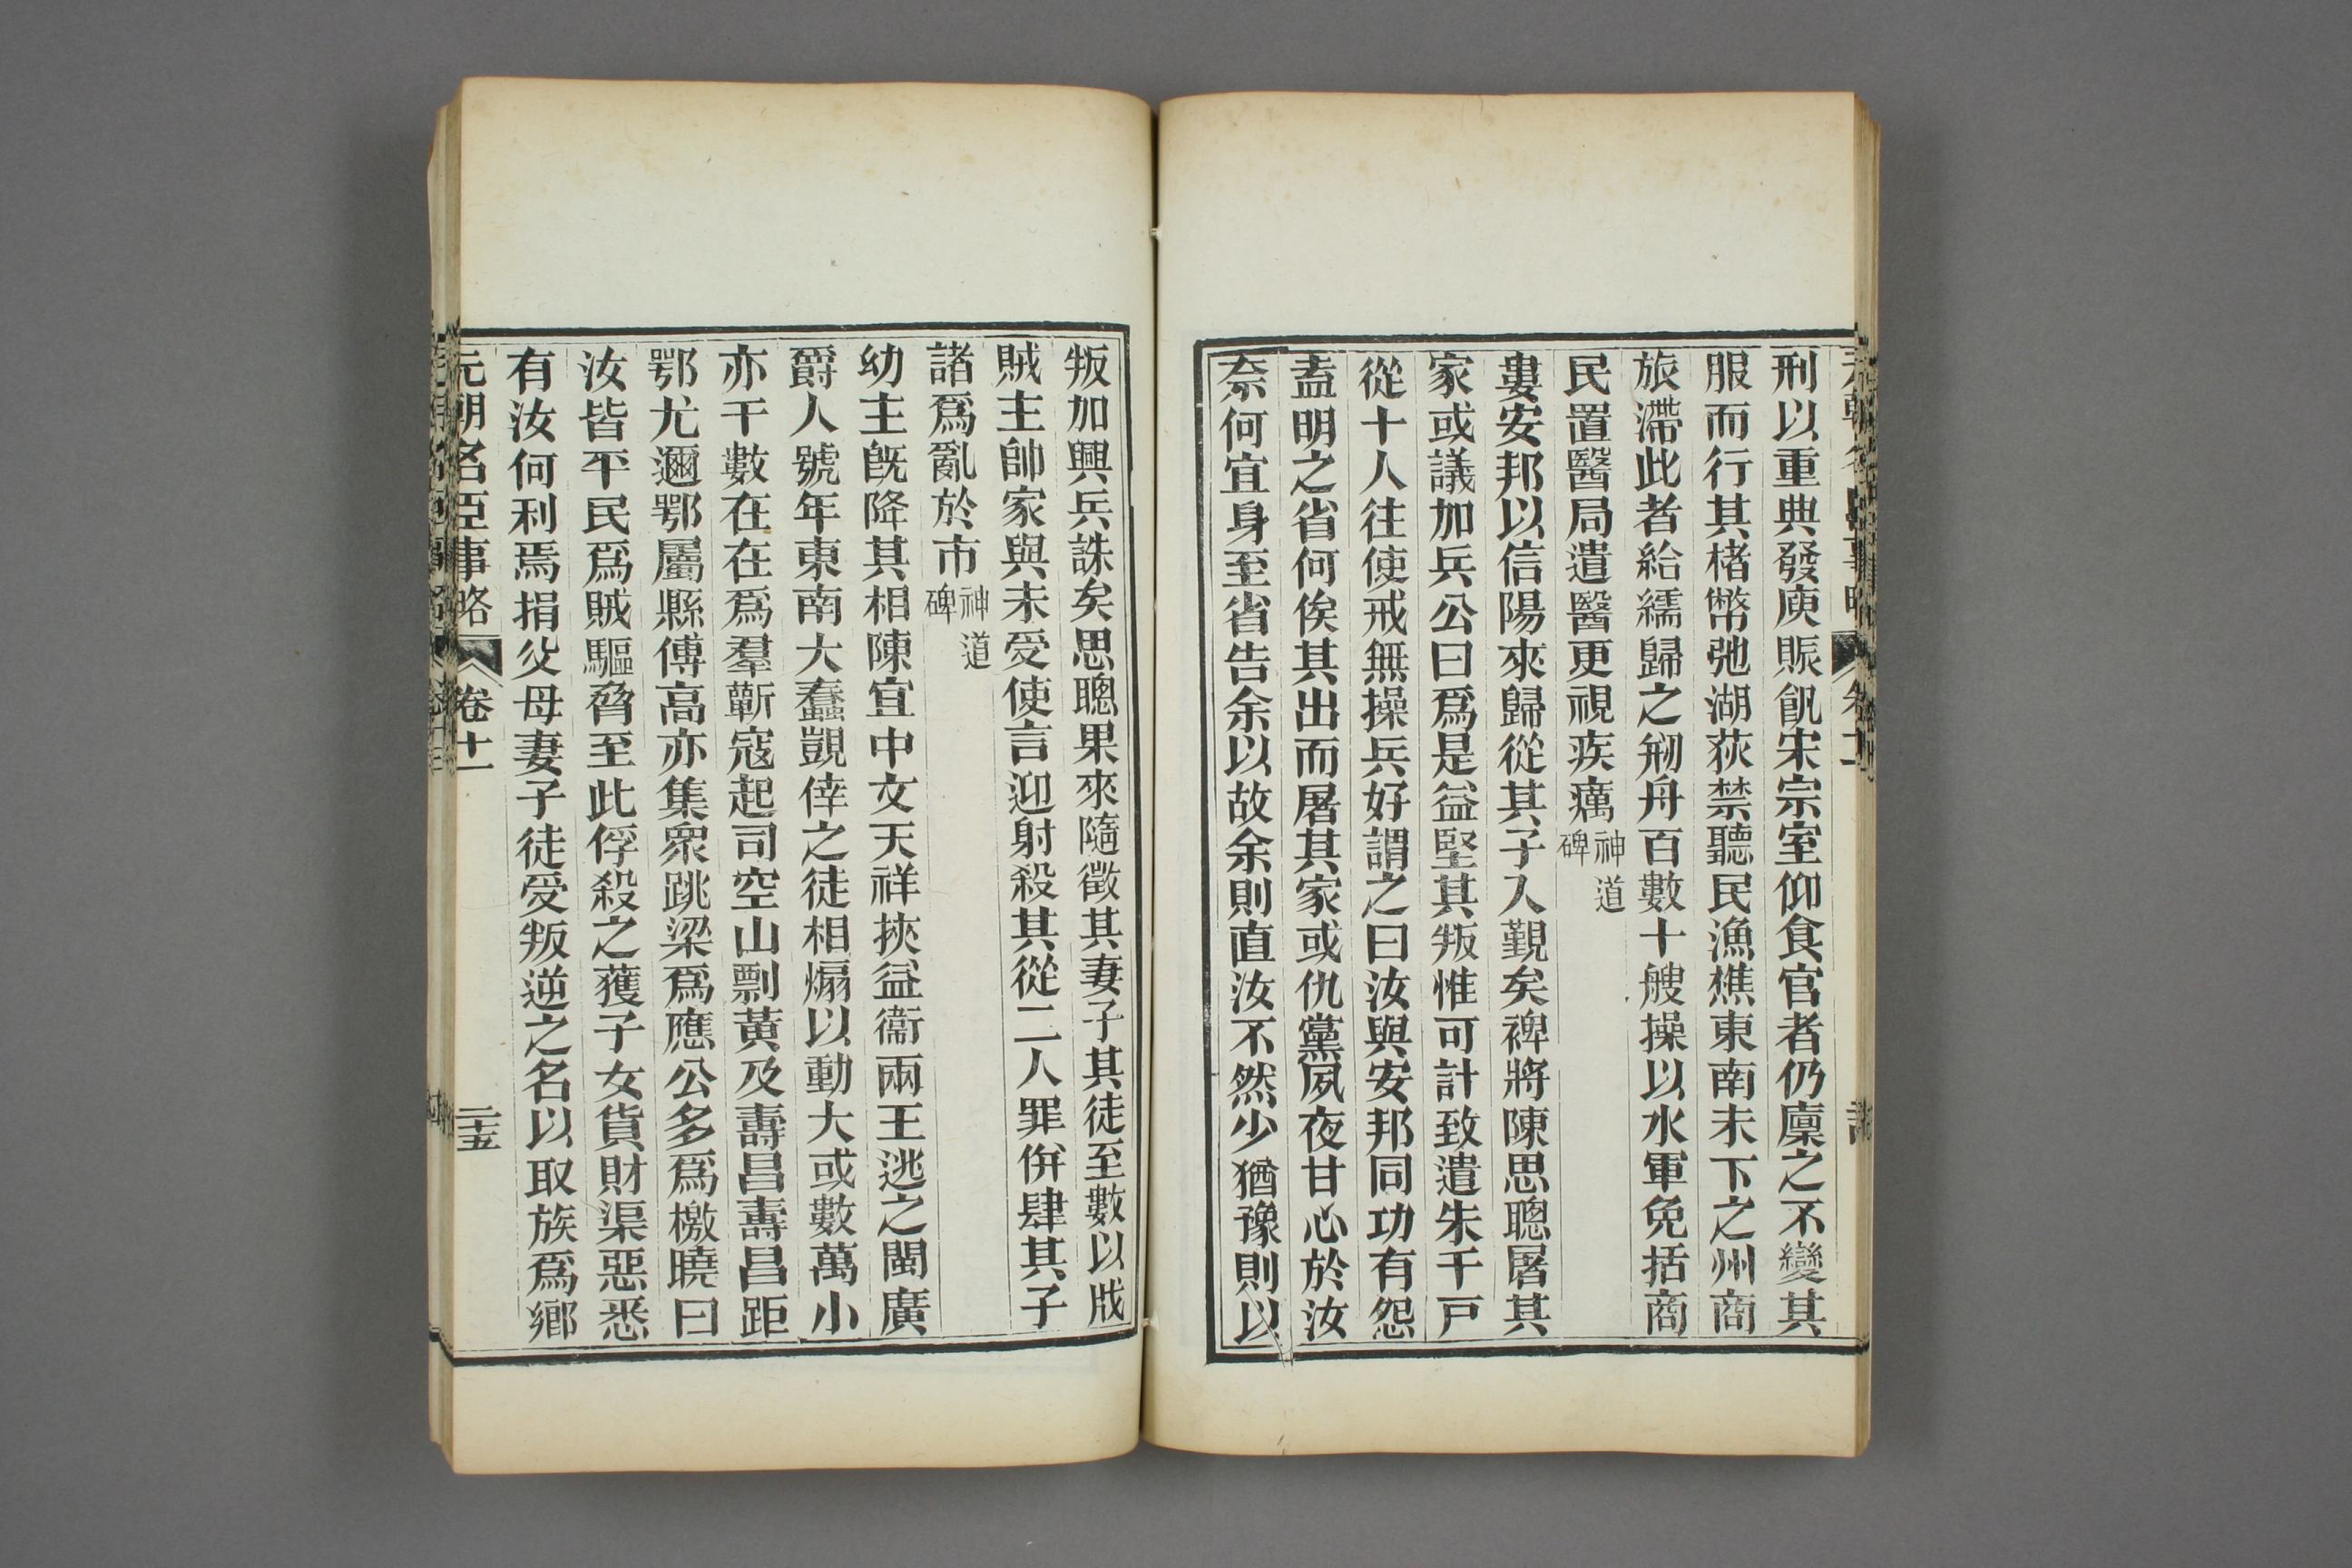 刑以重典發庾賑飢宋宗室仰食官者仍廩之不變其
服而行其楮幣弛湖荻禁聽民漁樵東南未下之州商
旅滯此者給繻歸之剏舟百數十艘操以水軍免括商
民置醫局遣醫更視疾癘神道碑
婁安邦以信陽來歸從其子入覲矣裨將陳思聰屠其
家或議加兵公曰爲是益堅其叛惟可計致遣朱千戸
從十人往使戒無操兵好謂之曰汝與安邦同功有怨
盍明之省何俟其出而屠其家或仇黨夙夜甘心於汝
柰何宜身至省告余以故余則直汝不然少猶豫則以
叛加興兵誅矣思聰果來隨徵其妻子其徒至數以戕
賊主帥家與未受使言迎射殺其從二人罪併肆其子
諸爲亂於市神道碑
幼主旣降其相陳宜中文天祥挾益衞兩王逃之閩廣
爵人號年東南大蠢覬倖之徒相煽以動大或數萬小
亦千數在在爲羣蘄寇起司空山剽黃及壽昌壽昌距
鄂尤邇鄂屬縣傅高亦集衆跳梁爲應公多爲檄曉曰
汝皆平民爲賊驅脅至此俘殺之獲子女貨財渠惡悉
有汝何利焉捐父母妻子徒受叛逆之名以取族爲鄉
元朝名臣事略 卷十一 二十五